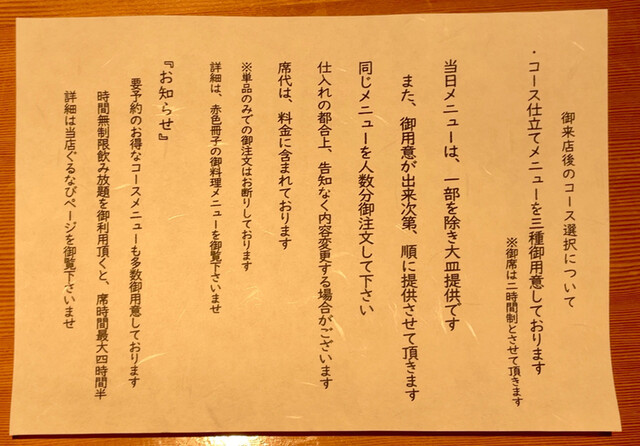 御来店後のコース選択について
・コース仕立てメニューを三種御用意しております
※御席は二時間制とさせて頂きます
当日メニューは、一部を除き大皿提供です
また、御用意が出来次第、順に提供させて頂きます
同じメニューを人数分御注文して下さい
仕入れの都合上、告知なく内容変更する場合がございます
席代は、料金に含まれております
※単品のみでの御注文はお断りしております
詳細は、赤色冊子の御料理メニューを御覧下さいませ
『お知らせ』
要予約のお得なコースメニューも多数御用意しております
時間無制限飲み放題を御利用頂くと、席時間最大四時間半
詳細は当店ぐるなびページを御覧下さいませ